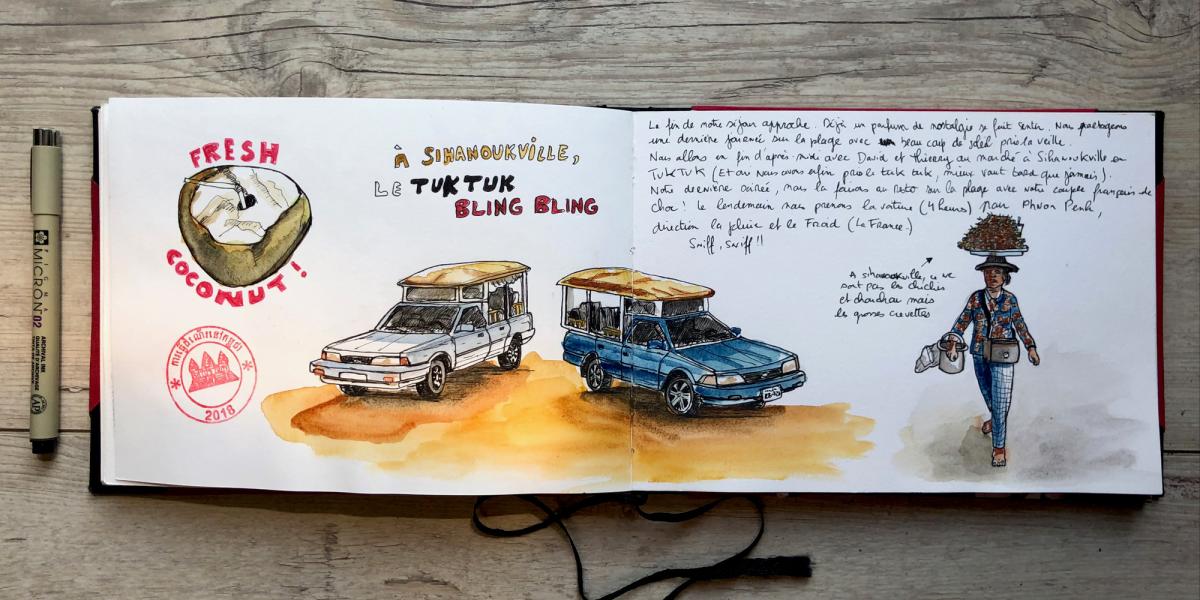 FRESH
COCONUT!
2018
À SIHANOUKVILLE,
LE TUKTUK
BLING BLING
La fin de notre séjour approche. Déjà un parfum de nostalgie se fait sentir. Nous partageons
une dernière journée sur la plage avec un beau coup de soleil pris la veille.
Nous allons en fin d'après-midi avec David et Thierry au marché à Sihanoukville en
TUKTUK (Et oui nous avons enfin pris le tuk tuk, mieux vaut tard que jamais).
Notre dernière soirée, nous la faisons au resto sur la plage avec notre couple français de
choc! Le lendemain nous prenons la voiture (4 heures) pour Phnom Penh,
direction la pluie et le Froid (La France.)
Sniff, Sniff!!
A Sihanoukville, ce ne
sont pas les chichis
et chouchou mais
les grosses crevettes
MICRON 02
ARCHIVAL INK